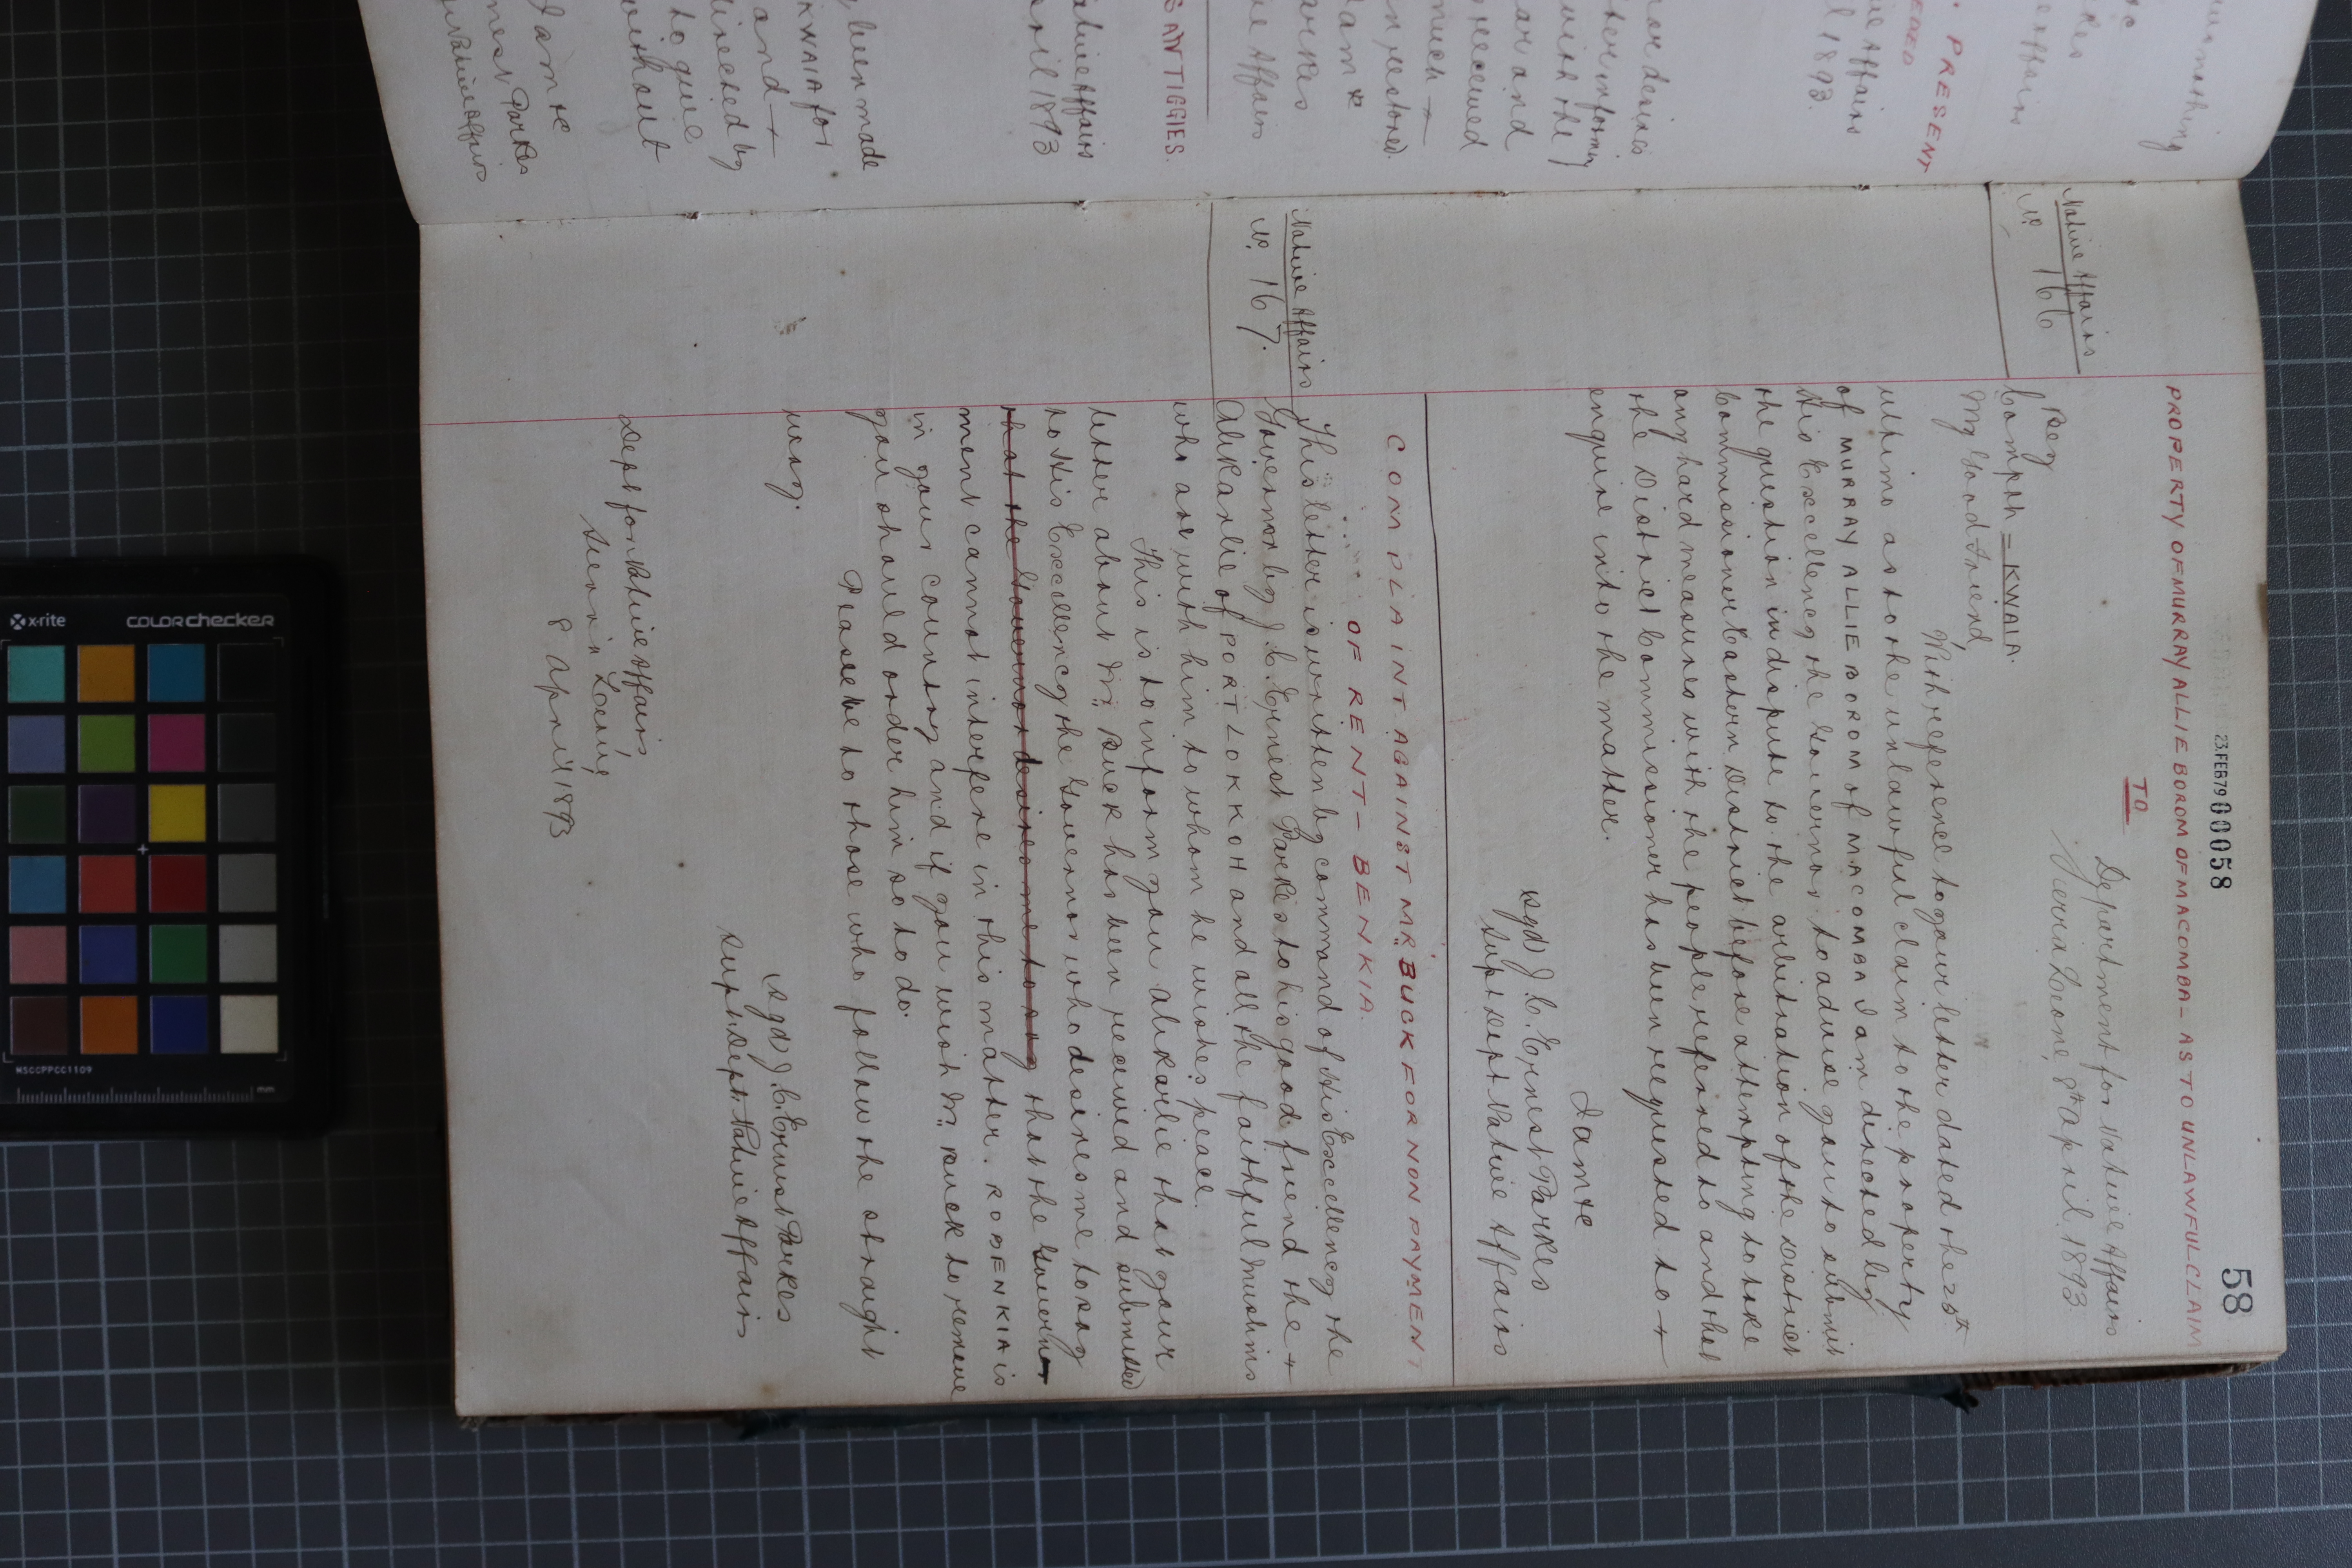 58
23 FEB 79 00058
PROPERTY OF MURRAY ALLIE BOROM OF MACOMBA – AS TO UNLAWFUL CLAIM
TO
Native Affairs
No 166
Department for Native Affairs
Sierra Leone, 8th April 1893
Bey
Compah = KWAIA.
My Good Friend,
With reference to your letter dated the 25th
ultimo as to the unlawful claim to the property
of MURRAY ALLIE BOROM of MACOMBA I am directed by
His Excellency the Governor to advise you to submit
the question in dispute to the arbitration of the District
Commissioner Eastern District before attempting to take
any hard measures with the people referred to and that
the District Commissioner has been requested to
enquire into the matter.
I am &c
sgd) J. C. Ernest Parkes
Supt Dept Native Affairs
COMPLAINT AGAINST MR. BUCK FOR NON PAYMENT
OF RENT – BENKIA.
Native Affairs
No. 167.
This letter is written by command of His Excellency the
Governor by J. C. Ernest Parkes to his good friend the
Alikarlie of PORT LOKKOH and all the faithful Muslims
who are with him to whom he wishes peace.
This is to inform you alikarlie that your
letter about Mr. Buck has been received and submitted
to His Excellency the Governor who desires me to say
that the Governor desires me to say that the Govern
ment cannot interfere in this matter. ROBENKIA is
in your country and if you wish Mr. Buck to remove
you should order him so to do.
Peace be to those who follow the straight
way.
(sgd) J. C. Ernest Parkes
Supt Dept. Native Affairs
Dept for Native Affairs
Sierra Leone,
8 April 1893
PRESENT
l 1893.
received
ANTIGGIES.
ative Affairs
ril 1893
been made
KWAIA for
and
directed by
to give
without
I am &c
nest Parkes
Native Affairs
x-rite
colorchecker
MSCCPPCC1109
mm